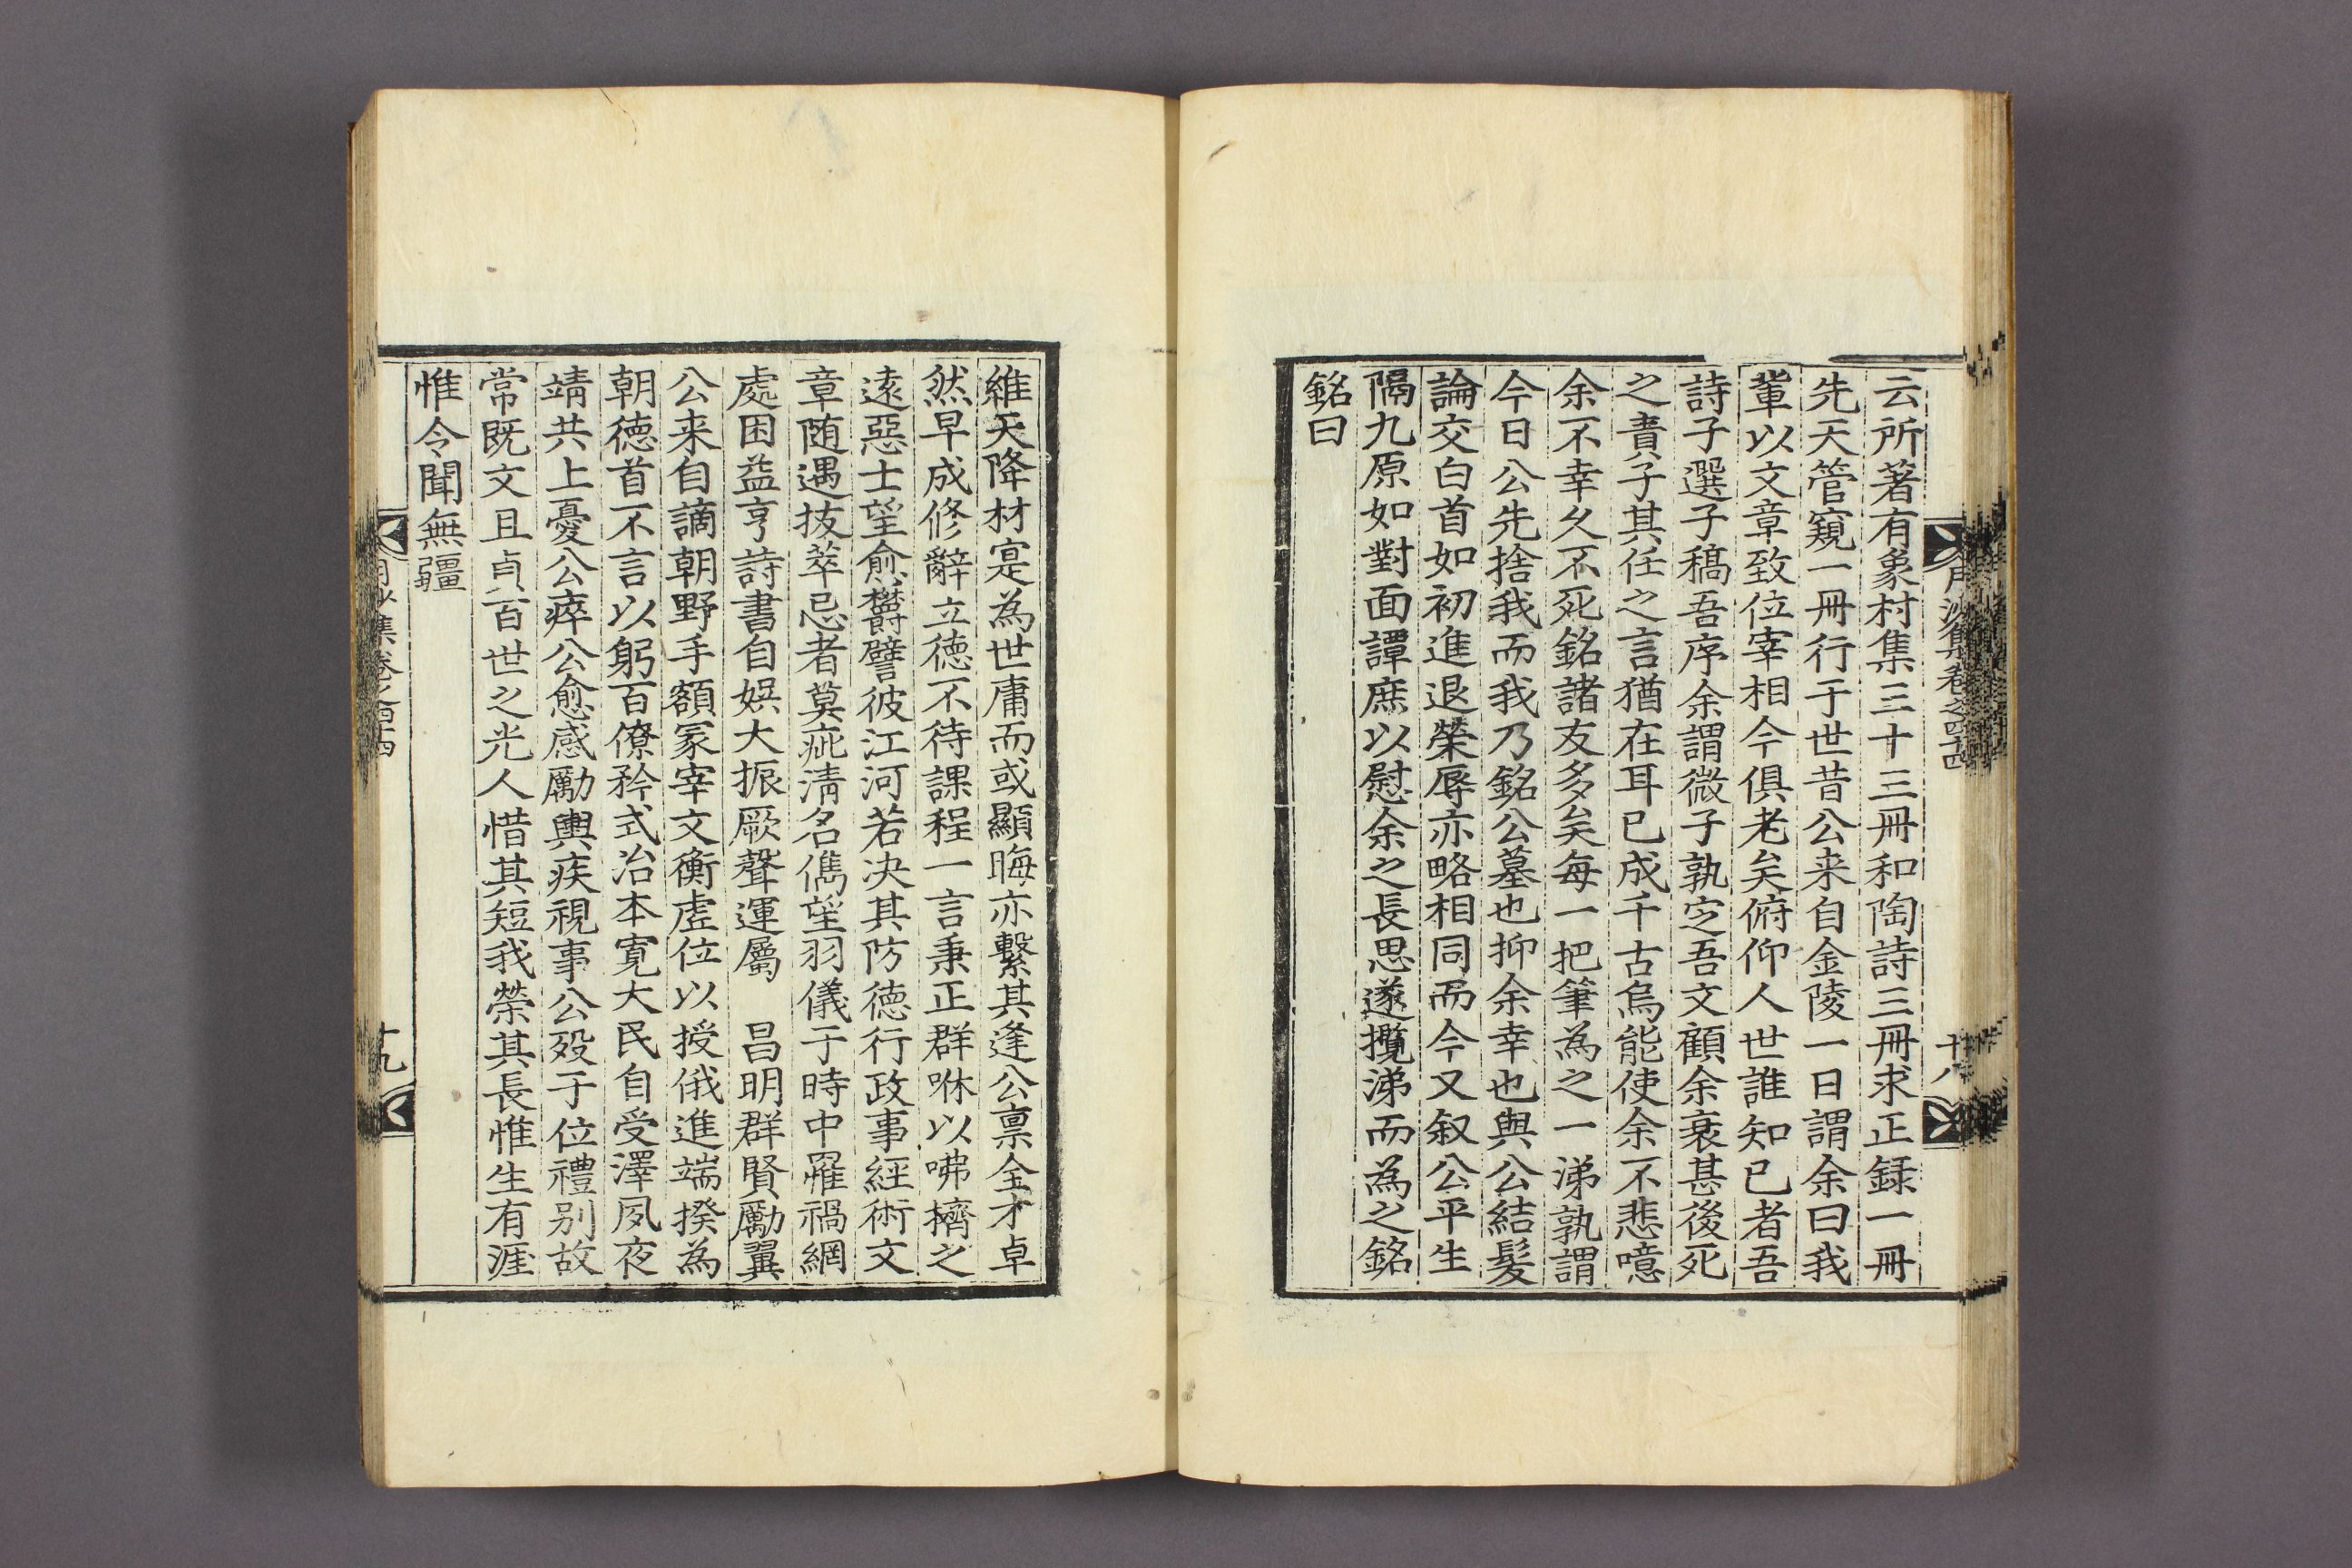 月沙集卷之四十四
十八
云所著有象村集三十三冊和陶詩三冊求正録一冊
先天管窺一冊行于世昔公来自金陵一日謂余曰我
輩以文章致位宰相今俱老矣俯仰人世誰知已者吾
詩子選子稿吾序余謂微子孰㝎吾文顧余衰甚後死
之責子其任之言猶在耳已成千古烏能使余不悲噫
余不幸久不死銘諸友多矣每一把筆為之一涕孰謂
今日公先捨我而我乃銘公墓也抑余幸也與公結髮
論交白首如初進退榮辱亦略相同而今又叙公平生
隔九原如對面譚庶以慰余之長思遂攬涕而為之銘
銘曰
維天降材寔為世庸而或顯晦亦繋其逢公禀全才卓
然早成修辭立德不待課程一言秉正群咻以咈擠之
逺惡士望愈欝譬彼江河若决其防德行政事經術文
章随遇拔萃忌者莫疵淸名儁望羽儀于時中罹禍網
處困益亨詩書自娯大振厥聲運屬　昌明群賢勵翼
公来自謫朝野手額冢宰文衡虚位以授俄進端揆為
朝德首不言以躬百僚矜式治本寛大民自受澤夙夜
靖共上憂公瘁公愈感勵輿疾視事公殁于位禮别故
常既文且貞百世之光人惜其短我榮其長惟生有涯
惟令聞無疆
月沙集卷之四十四
十九